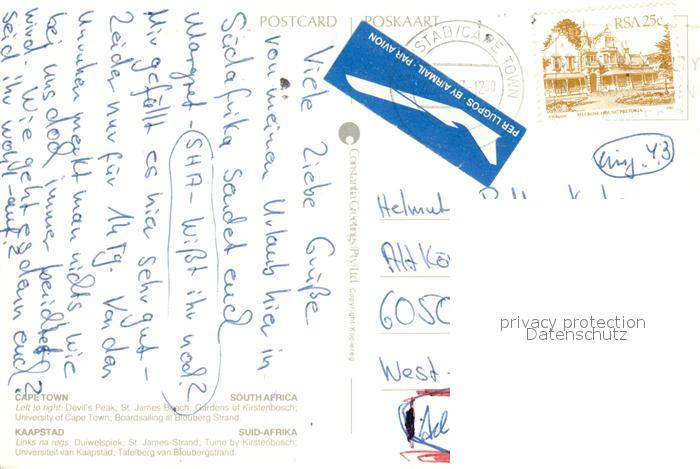 POSTCARD | POSKAART
Viele liebe Grüße
von meinem Urlaub hier in
Südafrika sendet euch
Margret - SHA - Wißt ihr noch?
Mir gefällt es hier sehr gut -
Leider nur für 14 Tg. Von den
Unruhen merkt man nichts, wie
bei uns doch immer berichtet
wird. Wie geht es denn euch?
Seid ihr wohl-auf?
Constantia Greetings (Pty) Ltd. Copyright
PER LUGPOS · BY AIRMAIL · PAR AVION
STAD/CAPE TOWN
1200
RSA 25c
MELROSE HOUSE PRETORIA
eing. 4/3
Helmut
Alt Kö
6050
West-
privacy protection
Datenschutz
CAPE TOWN SOUTH AFRICA
Left to right: Devil's Peak; St. James Beach; Gardens of Kirstenbosch;
University of Cape Town; Boardsailing at Blouberg Strand.
KAAPSTAD SUID-AFRIKA
Links na regs: Duiwelspiek; St. James-Strand; Tuine by Kirstenbosch;
Universiteit van Kaapstad; Tafelberg van Bloubergstrand.